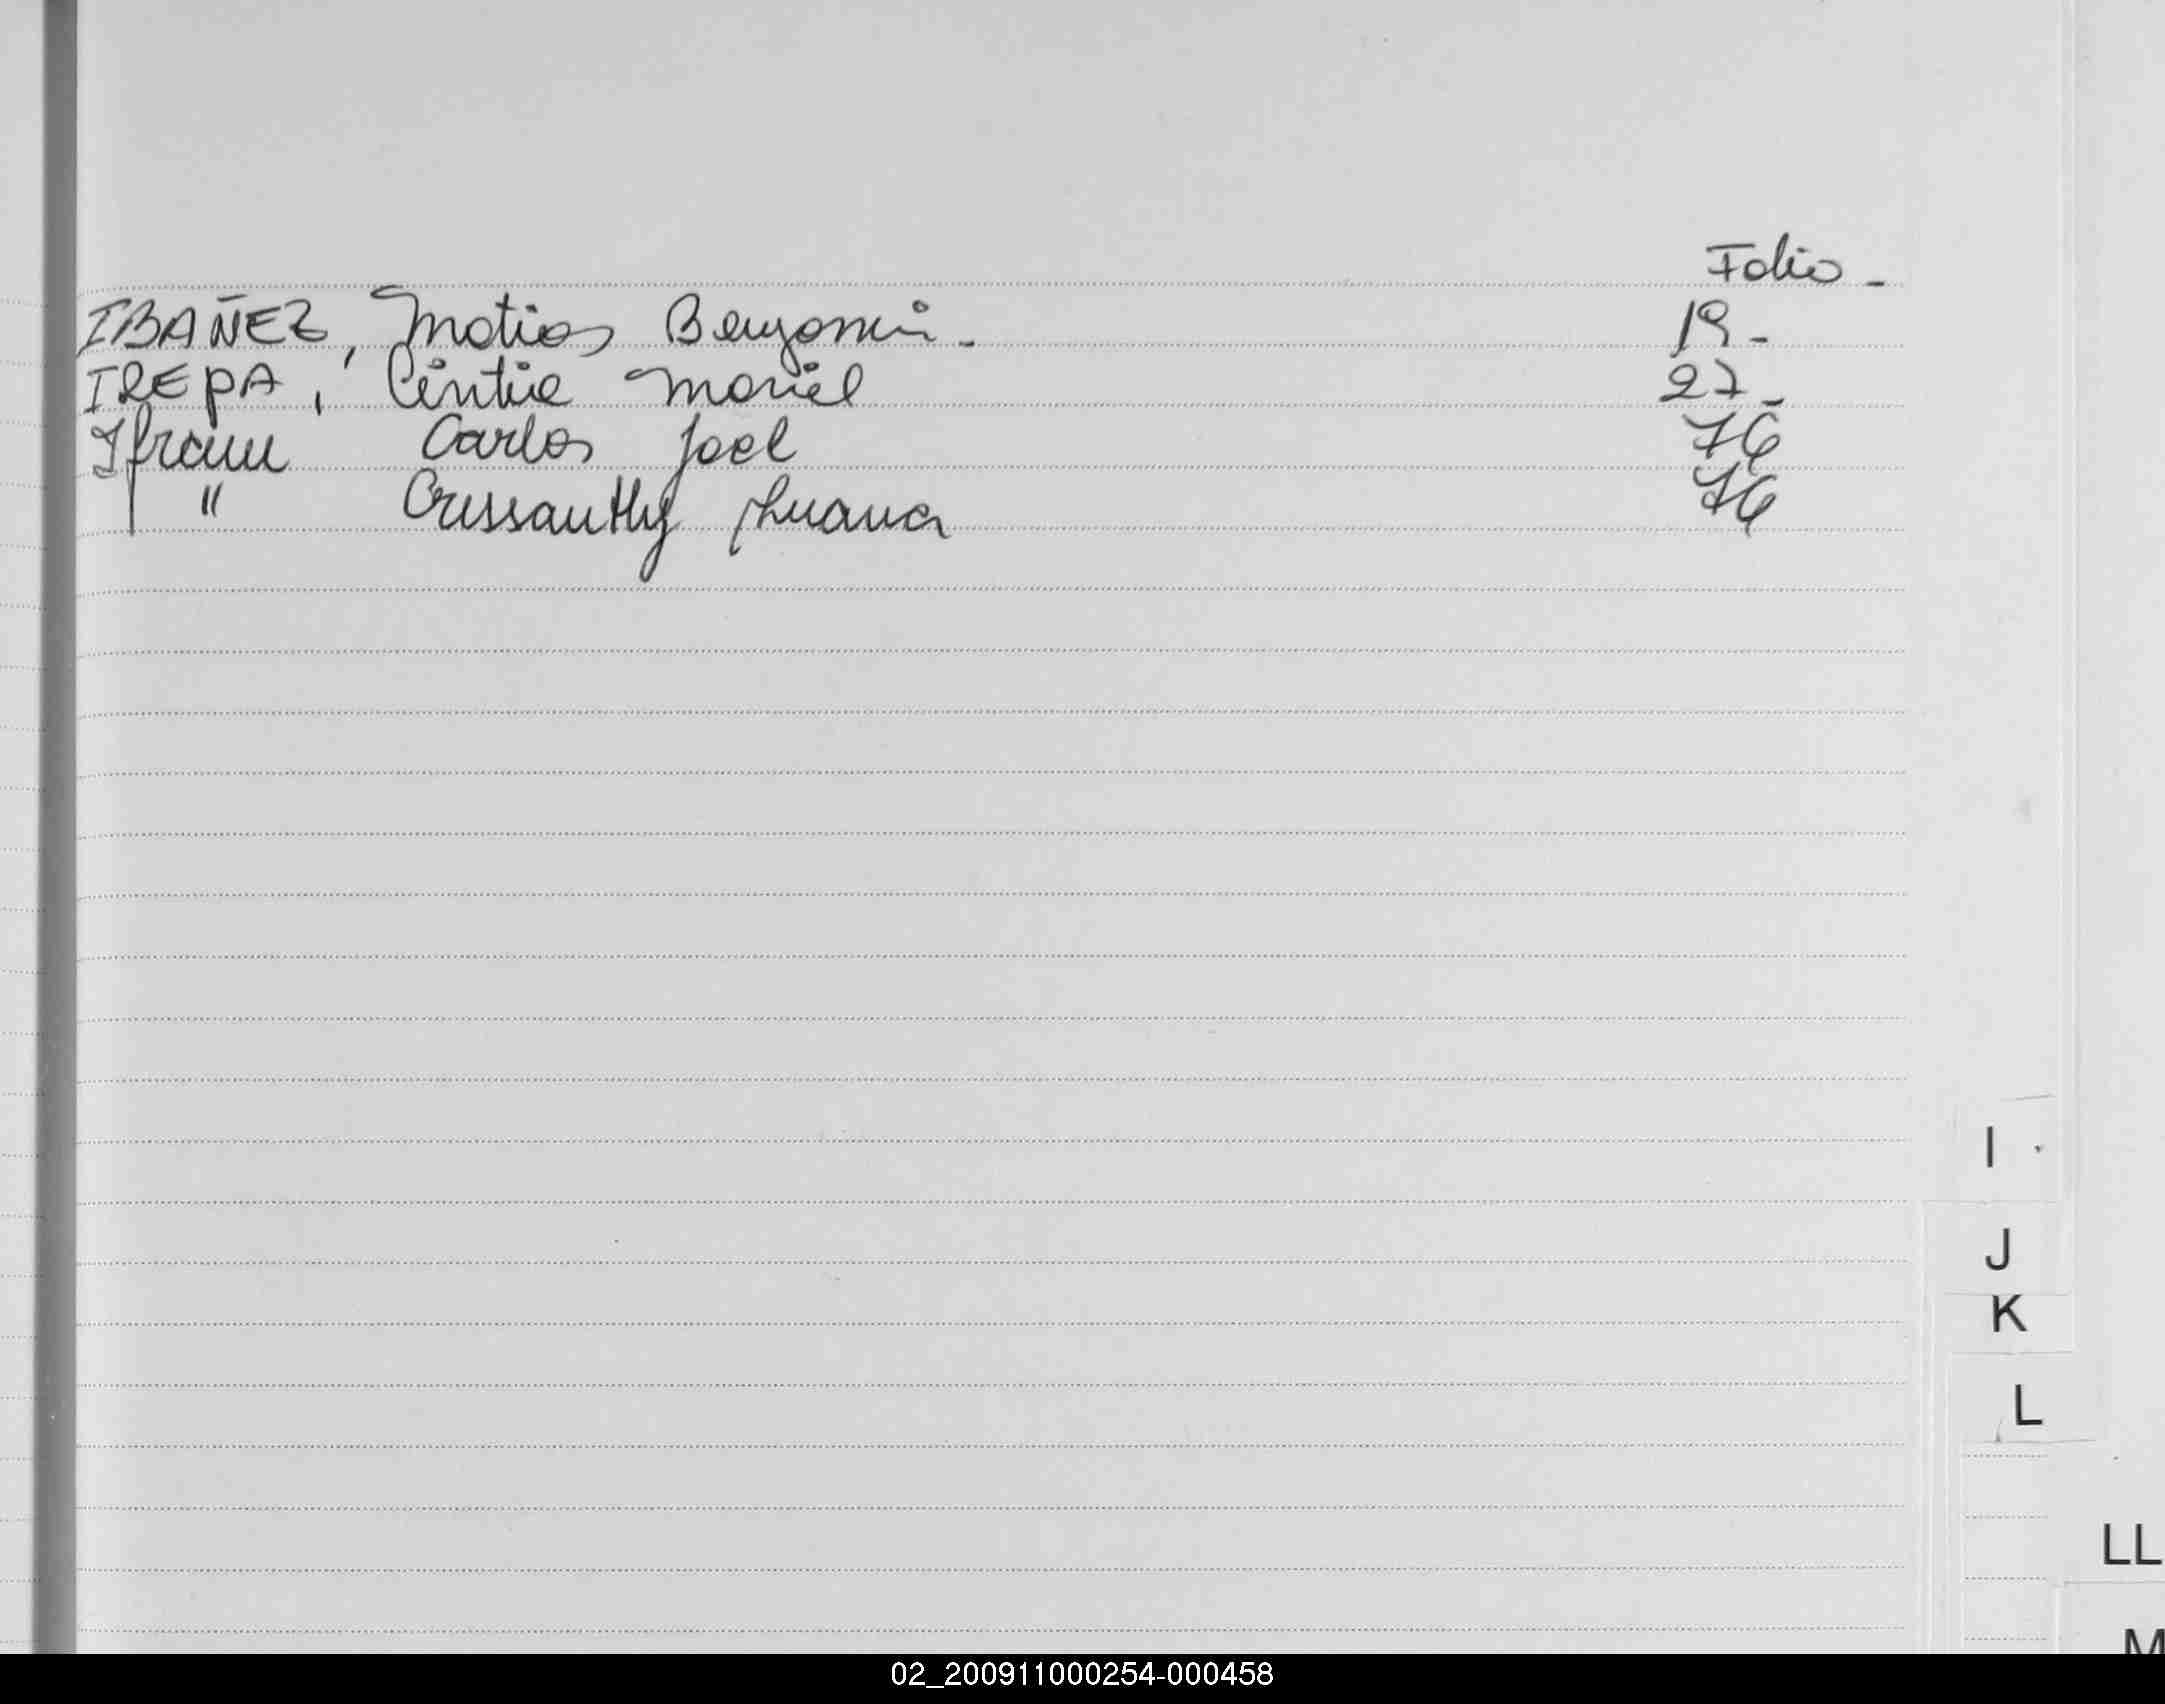 Folio -
IBAÑEZ, Matias Benjamin. 19-
IREPA, Cintia Mariel 27-
Ifran Carlos Joel 76
" Crissanthy Luana 76
I
J
K
L
LL
M
02_200911000254-000458